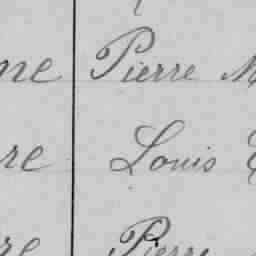 ne Pierre M
re Louis
re Pierre